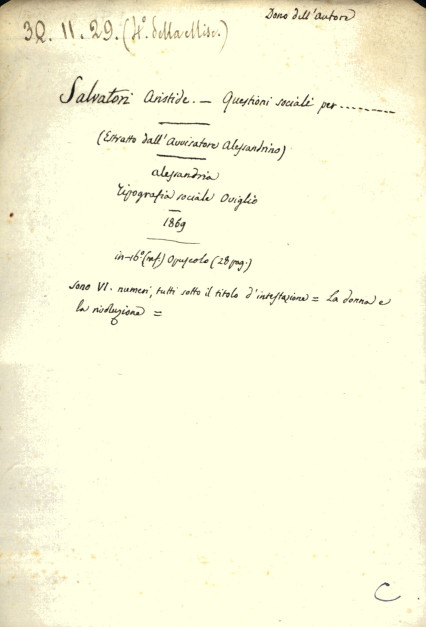 Dono dell'autore
32. 11. 29. (4°. della Misc.)
Salvatori Aristide. — Questioni sociali per ..........
(Estratto dall'Avvisatore Alessandrino)
Alessandria
Tipografia sociale Oviglio
1869
in-16° (inf.) Opuscolo (28 pag.)
Sono VI. numeri, tutti sotto il titolo d'intestazione = La donna e
la risoluzione =
C